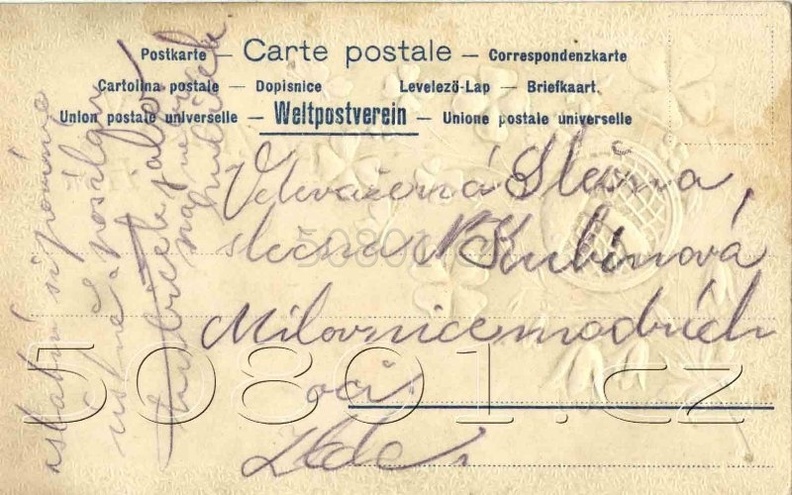 Postkarte — Carte postale — Correspondenzkarte
Cartolina postale — Dopisnice Levelező-Lap — Briefkaart.
Union postale universelle — Weltpostverein — Unione postale universelle
Velevážená Slečna,
slečna Kubínová
Milovnice modrých
očí.
Zde,
ostatní si povíme
ústně posílám
hubiček
50891.cz